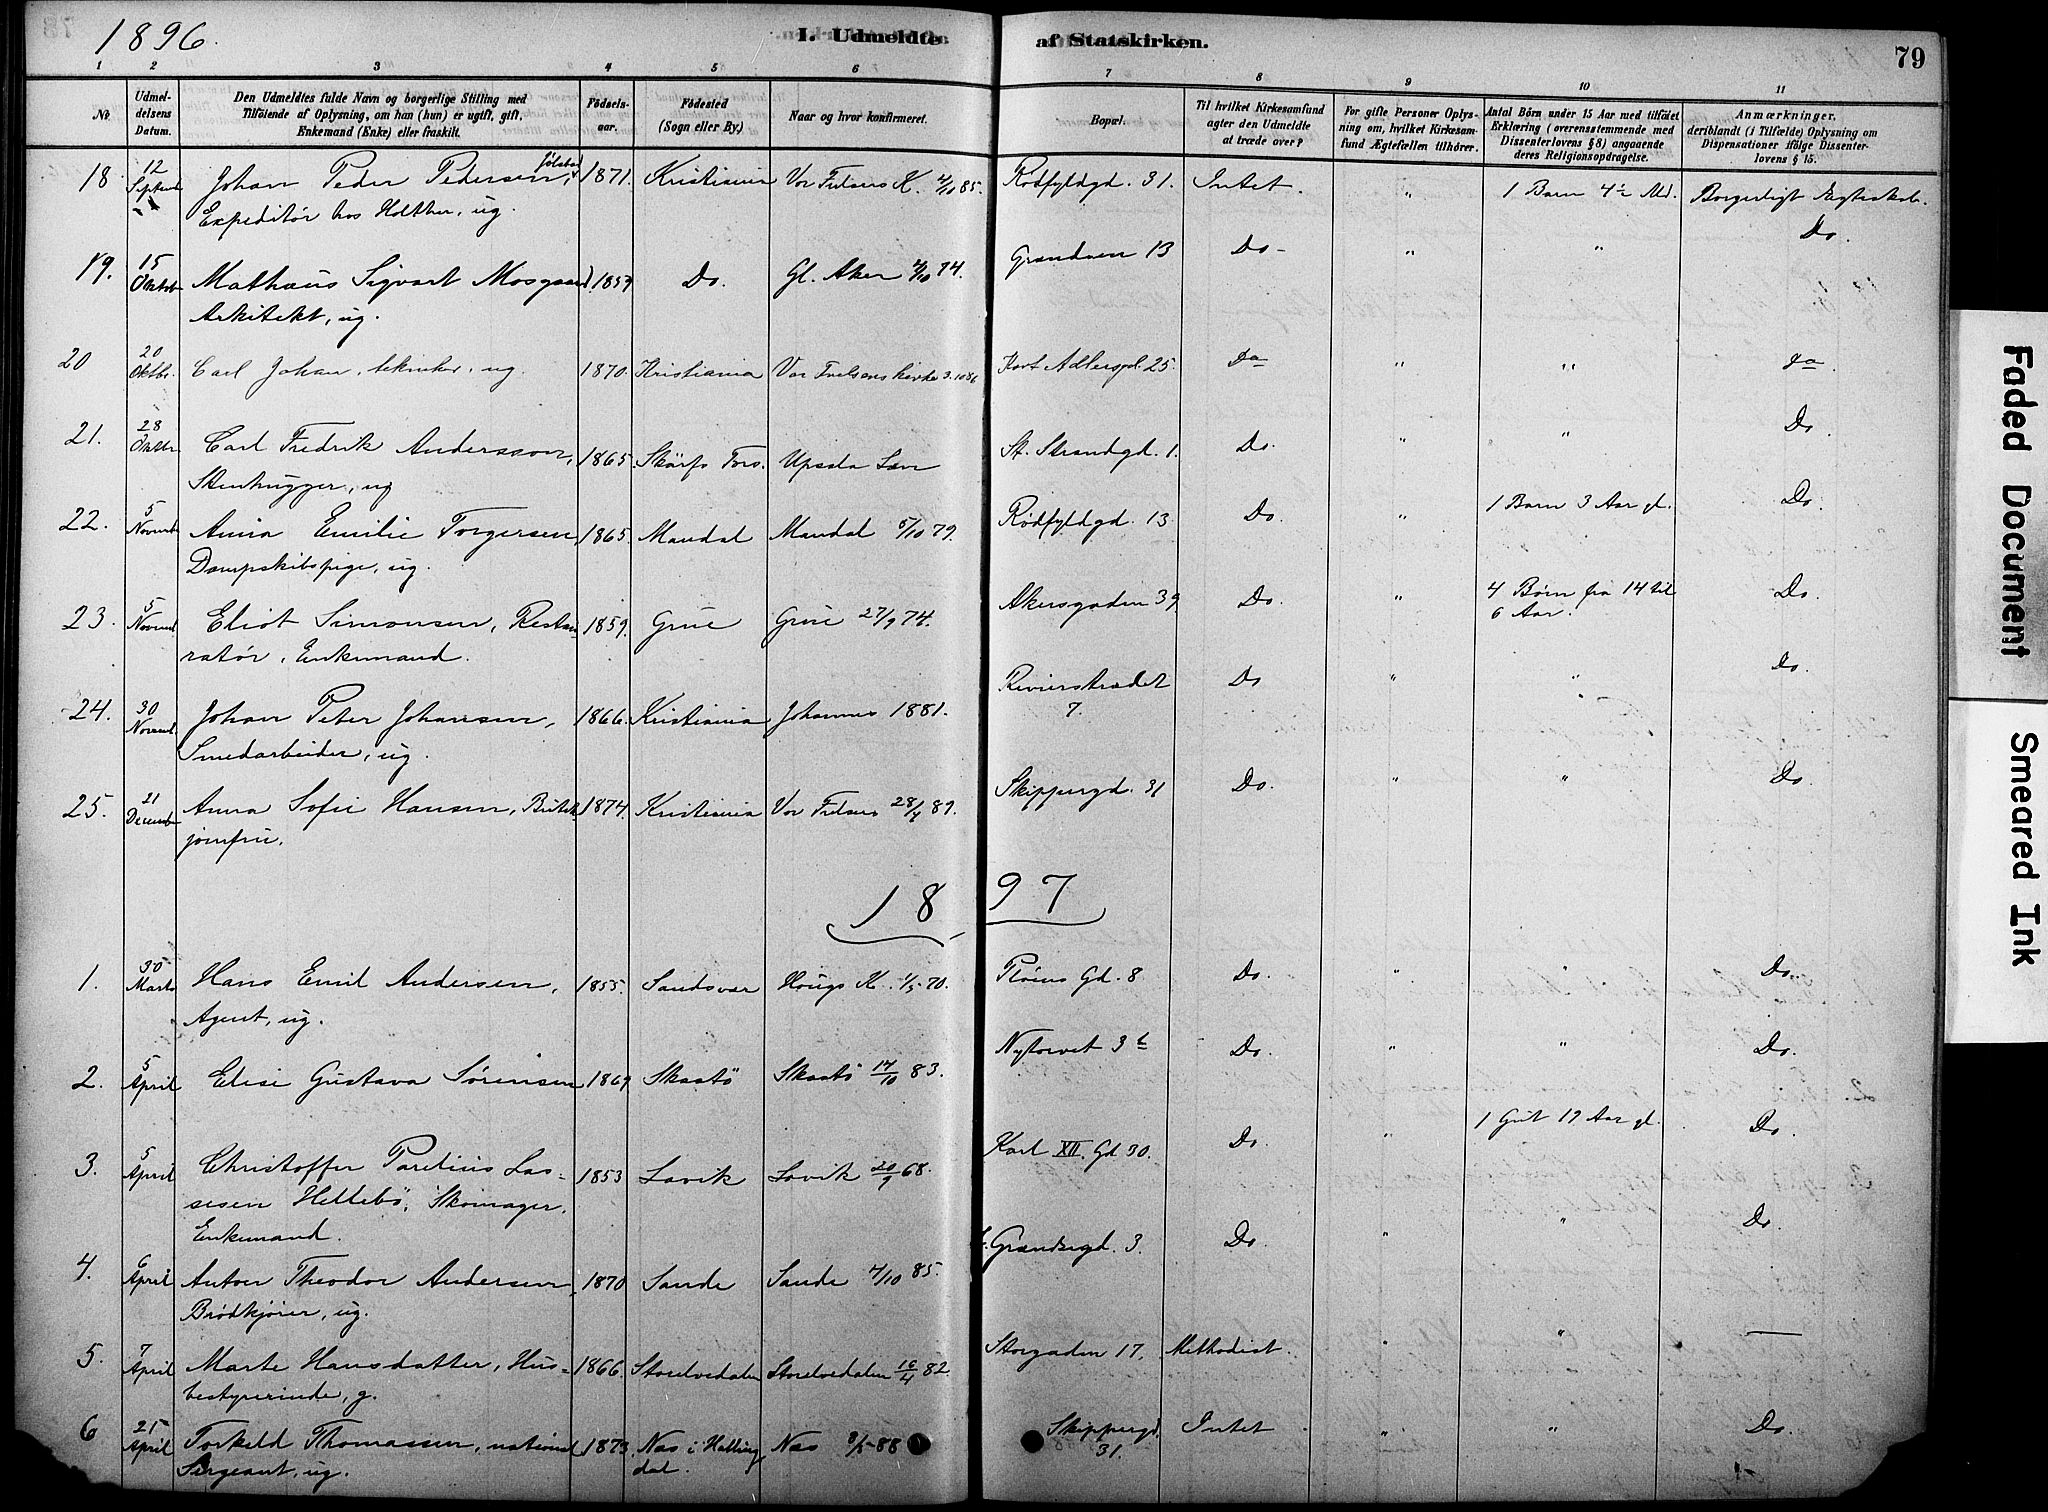 1896.
I. Udmeldte af Statskirken.
79
1 2 3 4 5 6 7 8 9 10 11
Nr.
Udmel-
delsens
Datum.
Den Udmeldtes fulde Navn og borgerlige Stilling med
Tilføiende af Oplysning, om han (hun) er ugift, gift,
Enkemand (Enke) eller fraskilt.
Fødsels-
aar.
Fødested
(Sogn eller By.)
Naar og hvor konfirmeret.
Bopæl.
Til hvilket Kirkesamfund
agter den Udmeldte
at træde over?
For gifte Personer Oplys-
ning om, hvilket Kirkesam-
fund Ægtefællen tilhører.
Antal Børn under 15 Aar med tilføiet
Erklæring (overensstemmende med
Dissenterlovens § 8) angaaende
deres Religionsopdragelse.
Anmærkninger,
deriblandt (i Tilfælde) Oplysning om
Dispensationer ifølge Dissenter-
lovens § 15.
18. 12 Septemb Johan Peder Pedersen, 1871. Kristiania Vor Frelsers K. 4/10 85. Rødfyldgd. 31. Intet. " 1 Barn 4½ Md. Borgerligt Ægteskab.
Expeditør hos Holther, ug.
19. 15 Oktob Mathæus Sigvart Mosgaard 1859 Do. Gl. Aker 4/10 74. Grændsen 13 Do. " " Do.
Arkitekt, ug.
20 20 Oktbr. Carl Johan, ug. 1870. Kristiania Vor Frelsers kirke 3.10 86 Kort Adlersgd. 25. do " " do
21. 28 Oktbr Carl Fredrik Andersson, 1865. Upsala Län St. Strandgd. 1. Do. " " Do.
Stenhugger, ug
22. 5 Novemb Anna Emilie Torgersen, 1865. Mandal Mandal 5/10 79. Rødfyldgd. 13. Do. " 1 Barn 3 Aar gl. Do.
Dampskibspige, ug.
23. 5 Novemb Eliot Simonsen, Restau- 1859. Grue Grue 27/9 74. Akersgaden 39 Do. " 4 Børn fra 14 til Do.
ratør, Enkemand. 6 Aar.
24. 30 Novemb. Johan Peter Johansen, 1866. Kristiania Johannes 1881. Revierstrædet Do " " Do.
Smedarbeider, ug. 7.
25. 21 Decemb Anna Sofie Hansen, Butik- 1874. Kristiania Vor Frelsers 28/4 89. Skippergd. 31 Do. " " Do.
jomfru.
1897
1. 30 Marts Hans Emil Andersen, 1855. Sandsvær Hougs K. 1/5 70. Pløens Gd. 8 Do. " " Do.
Agent, ug.
2. 5 April Elise Gustava Sørensen 1869 Skaatö Skaatö 14/10 83. Nytorvet 3 b Do. " " Do.
3. 5 April Christoffer Parelius Las- 1853 Lavik Lavik 20/9 68. Karl XII. Gd 30. Do. " 1 Gut 12 Aar gl. Do.
sesen Hellebö, Skomager,
Enkemand.
4. 6 April Anton Theodor Andersen, 1870 Sande Sande 4/10 85. Grændsegd. 3. Do. " " Do.
Brødkjører, ug.
5. 7 April Marte Hansdatter, Hus- 1866. Storelvedalen Storelvedalen 16/4 82. Storgaden 17. Methodist. " " —
bestyrerinde, g.
6 25 April Torkeld Thomassen, national 1873. Næs i Halling Næs 3/5 88 Skippergd. Intet " " Do.
Sergeant, ug. dal. 31.
Faded Document
Smeared Ink